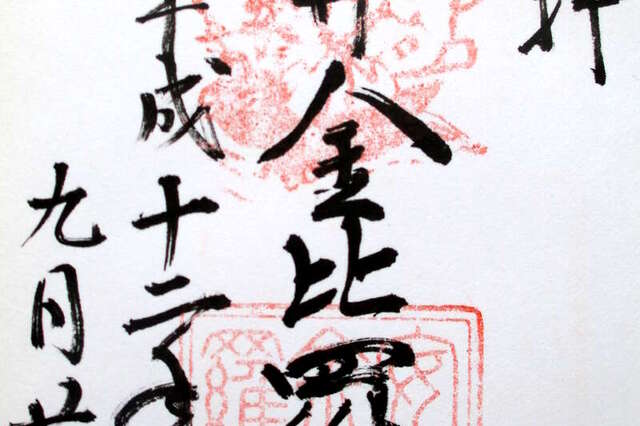 拝
金比羅
平成十二年
九月廿